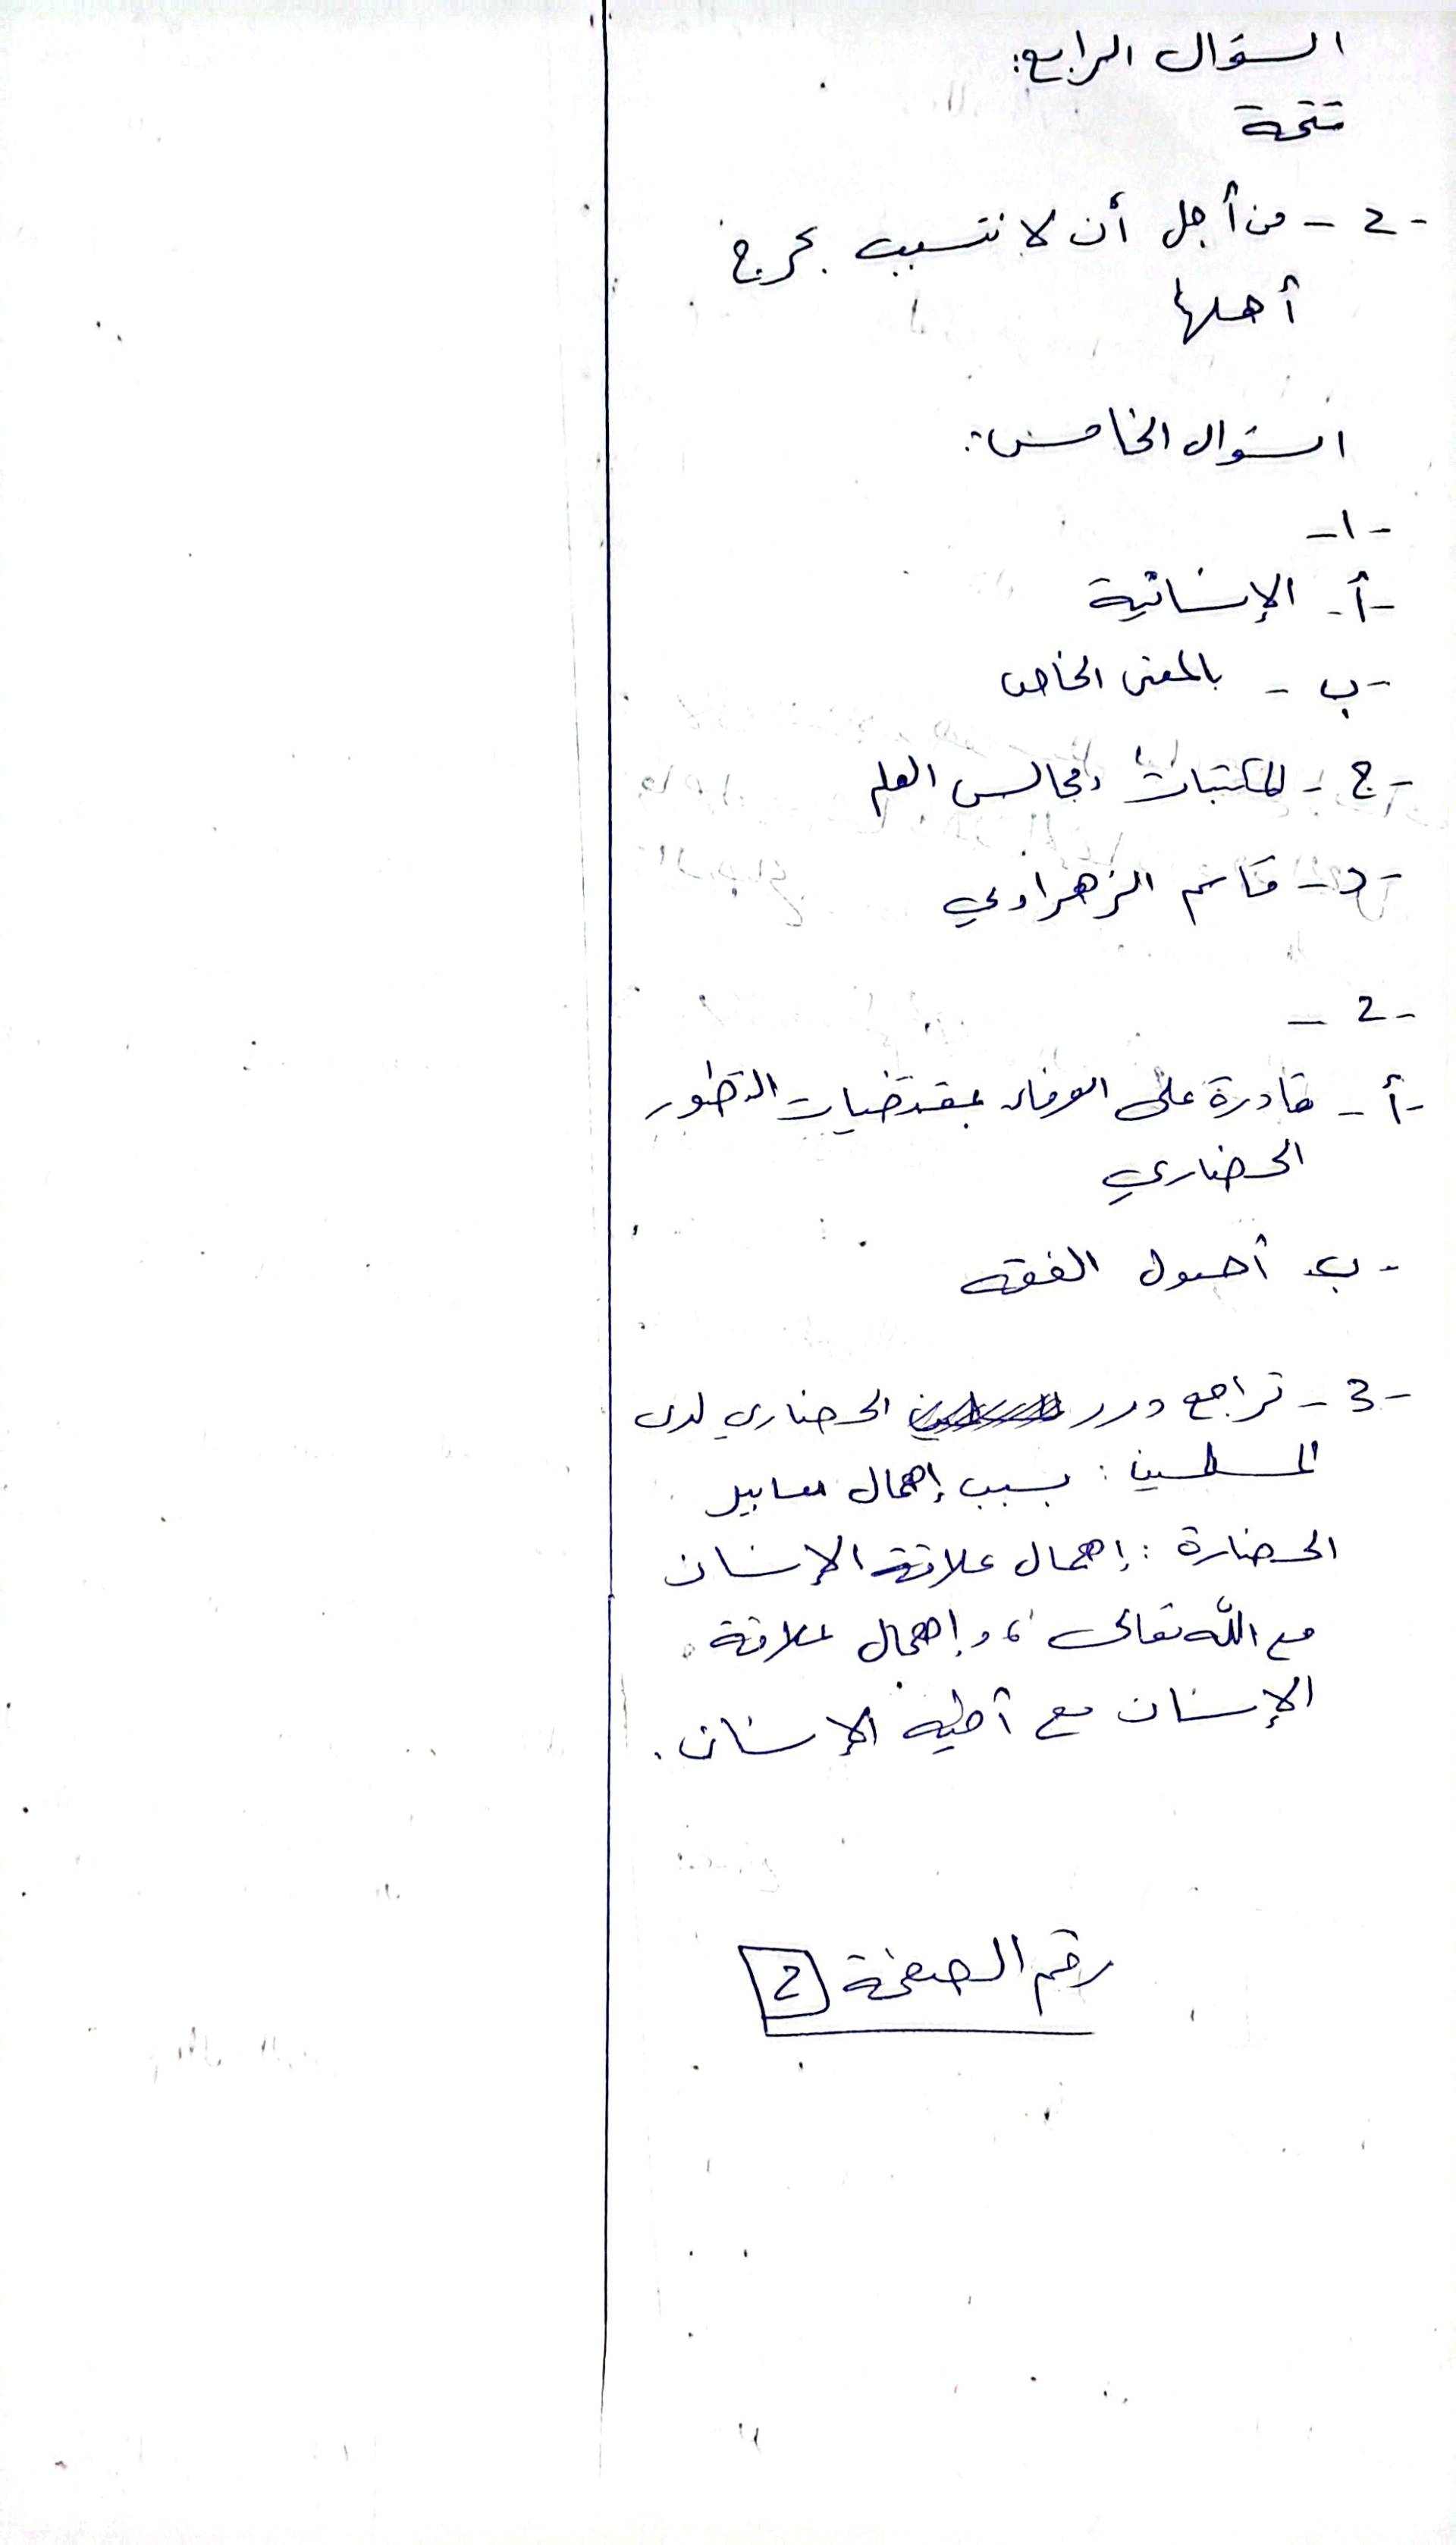 السؤال الرابع:
تتمة
-2- من أجل أن لا نتسبب بحرج
أهلها
السؤال الخامس:
-1-
-أ- الإنسانية
-ب- بالمعنى الخاص
-ج- المكتبات ومجالس العلم
-د- قاسم الزهراوي
-2-
-أ- قادرة على الوفاء بمقتضيات التطور
الحضاري
-ب- أصول الفقه
-3- تراجع دور الحضاري لدى
المسلمين: بسبب إهمال معايير
الحضارة: إهمال علاقة الإنسان
مع الله تعالى، وإهمال علاقة
الإنسان مع أخيه الإنسان.
رقم الصفحة 2